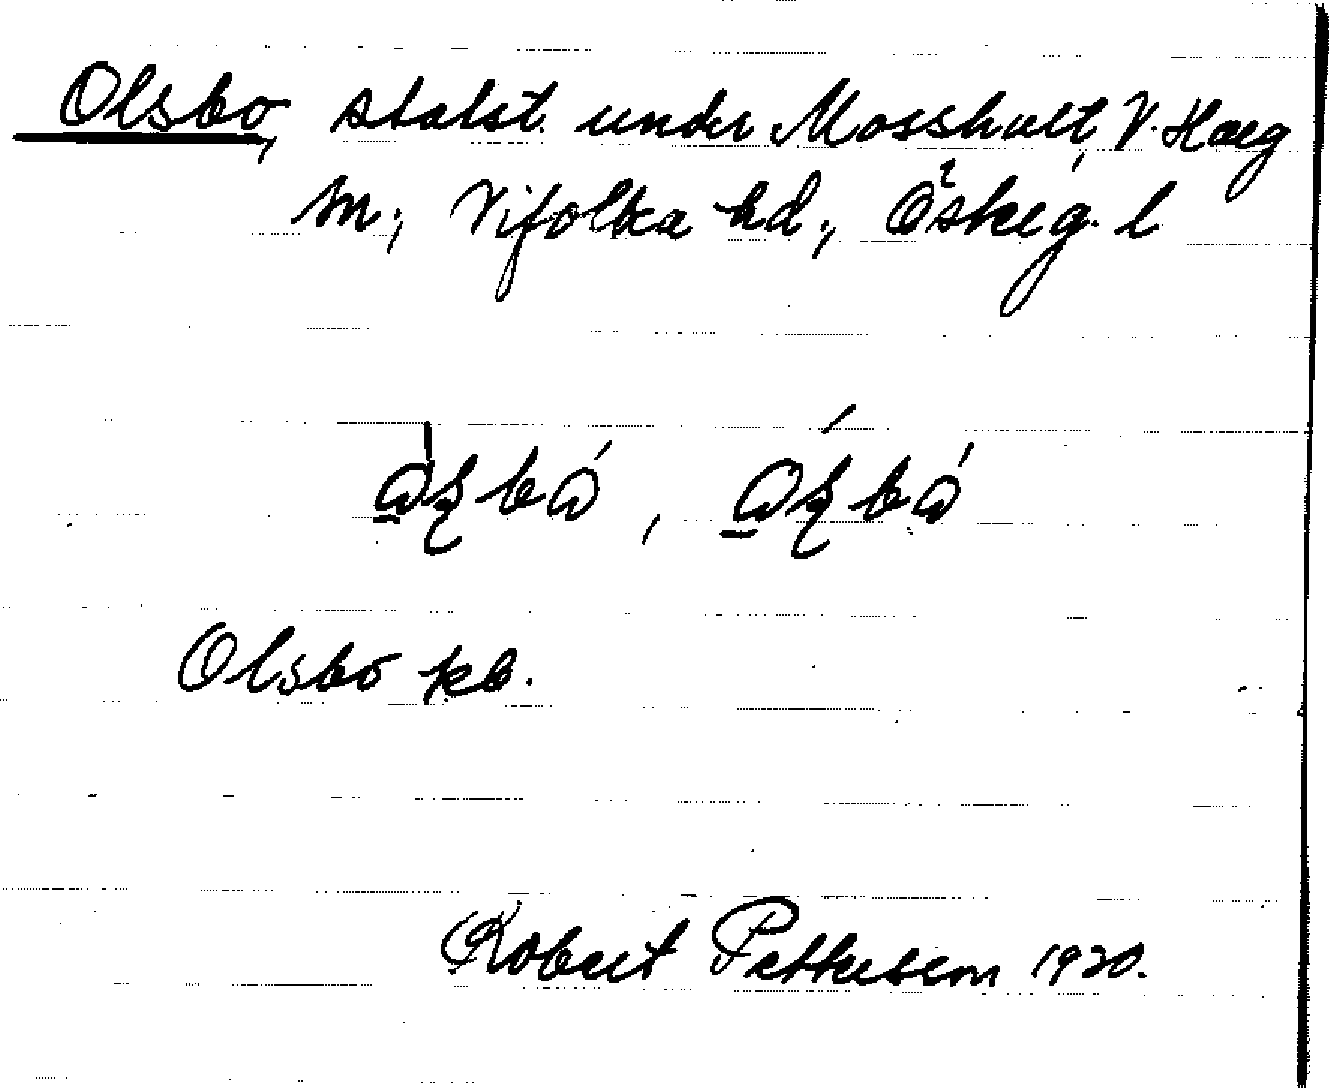 Olsbo, statst. under Mosshult, V. Harg
sn; Vifolka hd; Östeg. l
Olsbo kb.
Robert Pettersson 1920.